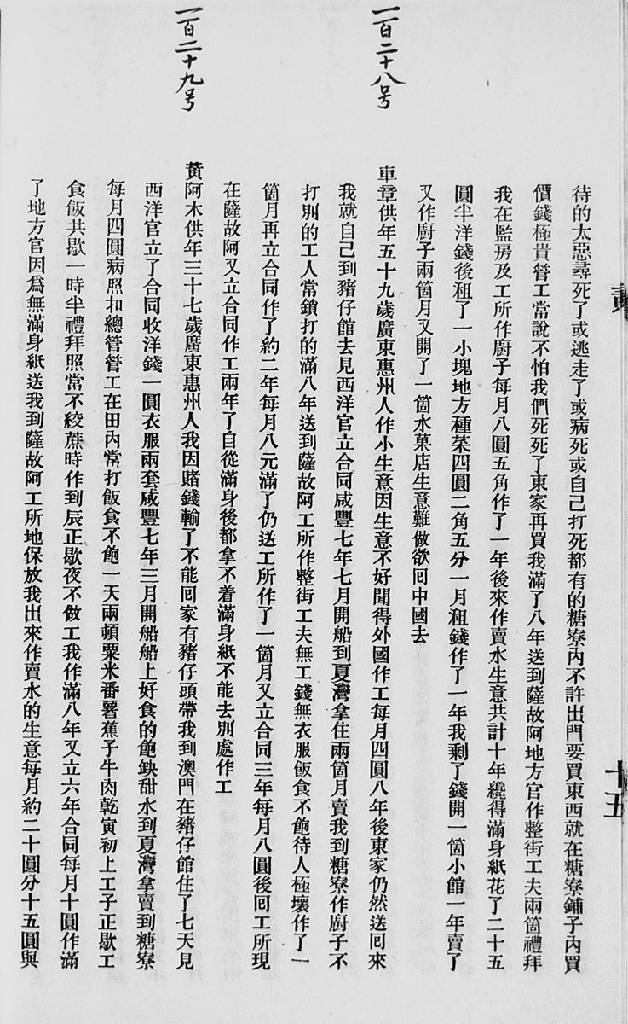 待的太惡尋死了或逃走了或病死或自己打死都有的糖寮內不許出門要買東西就在糖寮鋪子內買
價錢極貴管工常說不怕我們死死了東家再買我滿了八年送到薩故阿地方官作整街工夫兩箇禮拜
我在監房及工所作廚子每月八圓五角作了一年後來作賣水生意共計十年纔得滿身紙花了二十五
圓半洋錢後租了一小塊地方種菜四圓二角五分一月租錢作了一年我剩了錢開一箇小館一年賣了
又作廚子兩箇月又開了一箇水菓店生意難做欲回中國去
一百二十八号
車章供年五十九歲廣東惠州人作小生意因生意不好聞得外國作工每月四圓八年後東家仍然送回來
我就自己到豬仔館去見西洋官立合同咸豐七年七月開船到夏灣拿住兩箇月賣我到糖寮作廚子不
打別的工人常鎖打的滿八年送到薩故阿工所作整街工夫無工錢無衣服飯食不飽待人極壞作了一
箇月再立合同作了約二年每月八元滿了仍送工所作了一箇月又立合同三年每月八圓後回工所現
在薩故阿又立合同作工兩年了自從滿身後都拿不着滿身紙不能去別處作工
一百二十九号
黃阿木供年三十七歲廣東惠州人我因賭錢輸了不能回家有豬仔頭帶我到澳門在豬仔館住了七天見
西洋官立了合同收洋錢一圓衣服兩套咸豐七年三月開船船上好食的飽缺甜水到夏灣拿賣到糖寮
每月四圓病照扣總管管工在田內常打飯食不飽一天兩頓粟米番薯蕉子牛肉乾寅初上工子正歇工
食飯共歇一時半禮拜照當不絞蔗時作到辰正歇夜不做工我作滿八年又立六年合同每月十圓作滿
了地方官因爲無滿身紙送我到薩故阿工所地保放我出來作賣水的生意每月約二十圓分十五圓與
十五